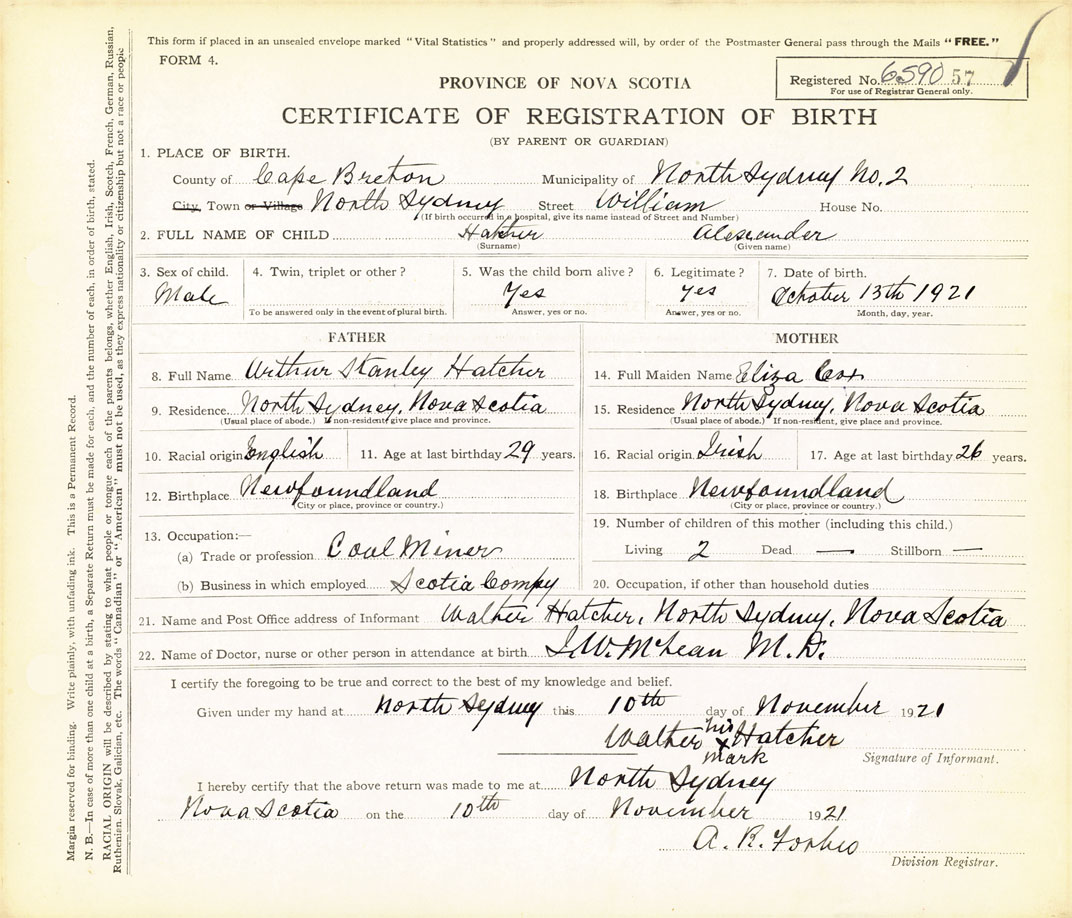 This form if placed in an unsealed envelope marked "Vital Statistics" and properly addressed will, by order of the Postmaster General pass through the Mails "FREE."
FORM 4.
Registered No. 6590 57
For use of Registrar General only.
PROVINCE OF NOVA SCOTIA
CERTIFICATE OF REGISTRATION OF BIRTH
(BY PARENT OR GUARDIAN)
1. PLACE OF BIRTH.
County of Cape Breton Municipality of North Sydney No. 2
City, Town or Village North Sydney Street William House No.
(If birth occurred in a hospital, give its name instead of Street and Number)
2. FULL NAME OF CHILD Hatcher Alexander
(Surname) (Given name)
3. Sex of child. 4. Twin, triplet or other? 5. Was the child born alive? 6. Legitimate? 7. Date of birth.
Male Yes Yes October 13th 1921
To be answered only in the event of plural birth. Answer, yes or no. Answer, yes or no. Month, day, year.
FATHER MOTHER
8. Full Name Arthur Stanley Hatcher 14. Full Maiden Name Eliza Cox
9. Residence North Sydney, Nova Scotia 15. Residence North Sydney, Nova Scotia
(Usual place of abode.) If non-resident, give place and province. (Usual place of abode.) If non-resident, give place and province.
10. Racial origin English 11. Age at last birthday 29 years. 16. Racial origin Irish 17. Age at last birthday 26 years.
12. Birthplace Newfoundland 18. Birthplace Newfoundland
(City or place, province or country.) (City or place, province or country.)
13. Occupation:— 19. Number of children of this mother (including this child.)
(a) Trade or profession Coal Miner Living 2 Dead — Stillborn —
(b) Business in which employed Scotia Compy 20. Occupation, if other than household duties
21. Name and Post Office address of Informant Walter Hatcher, North Sydney, Nova Scotia
22. Name of Doctor, nurse or other person in attendance at birth J. W. McLean M. D.
I certify the foregoing to be true and correct to the best of my knowledge and belief.
Given under my hand at North Sydney this 10th day of November 1921
Walter his x mark Hatcher
Signature of Informant.
I hereby certify that the above return was made to me at North Sydney
Nova Scotia on the 10th day of November 1921
A. R. Forbes
Division Registrar.
Margin reserved for binding. Write plainly, with unfading ink. This is a Permanent Record.
N. B.—In case of more than one child at a birth, a Separate Return must be made for each, and the number of each, in order of birth, stated.
RACIAL ORIGIN will be described by stating to what people or tongue each of the parents belongs, whether English, Irish, Scotch, French, German, Russian,
Ruthenian, Slovak, Galician, etc. The words "Canadian" or "American" must not be used, as they express nationality or citizenship but not a race or people